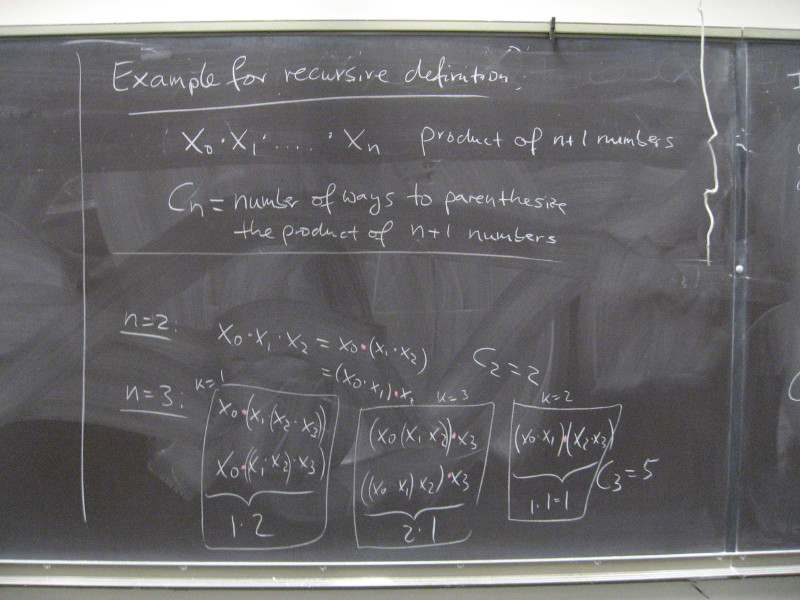 Example for recursive definition:
X₀·X₁·....·Xₙ product of n+1 numbers
Cₙ = number of ways to parenthesize
the product of n+1 numbers
n=2: X₀·X₁·X₂ = X₀·(X₁·X₂)
=(X₀·X₁)·X₂
C₂=2
n=3:
k=1
X₀·(X₁(X₂·X₃))
X₀·((X₁·X₂)·X₃)
1·2
k=3
(X₀(X₁X₂))·X₃
((X₀X₁)X₂)·X₃
2·1
k=2
(X₀·X₁)·(X₂·X₃)
1·1=1
C₃=5